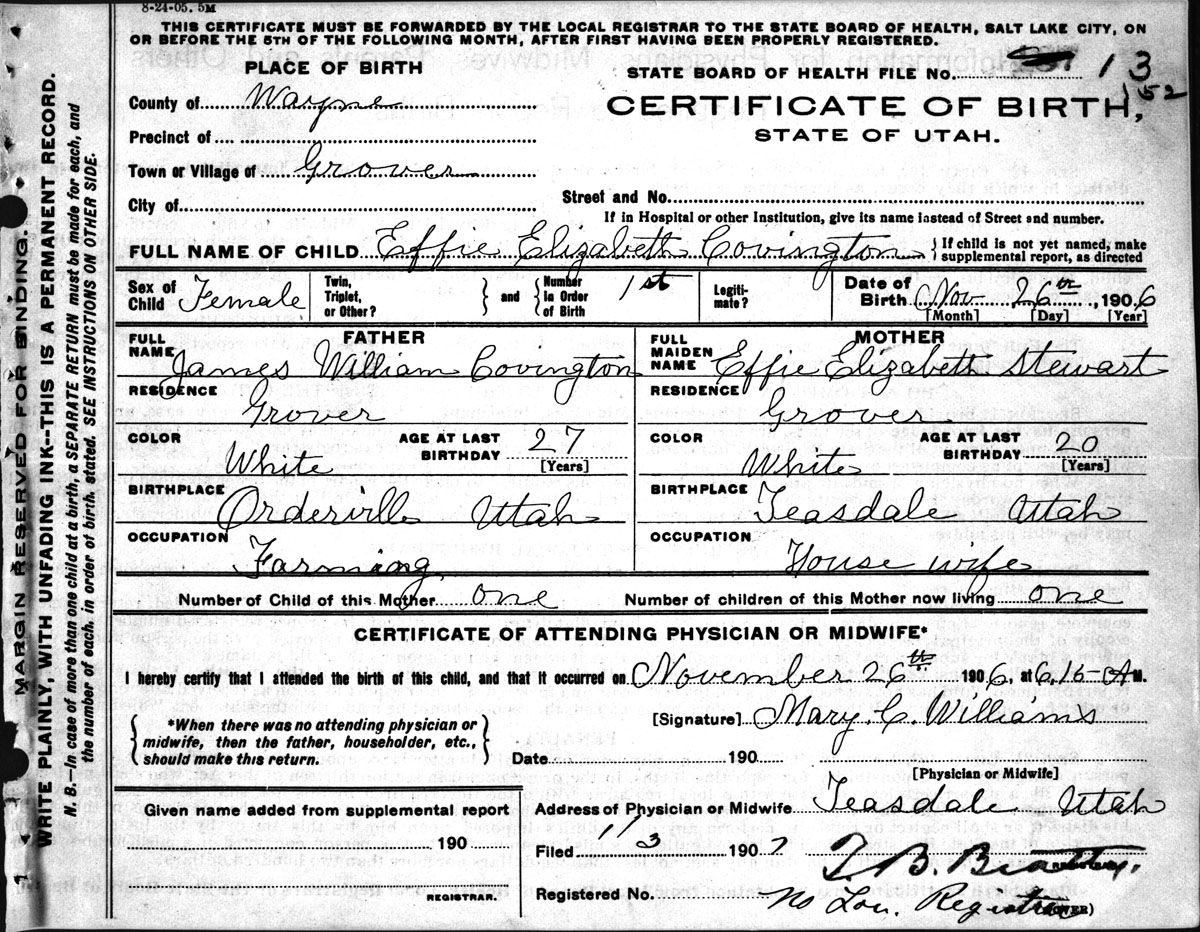 8-24-05. 5M
THIS CERTIFICATE MUST BE FORWARDED BY THE LOCAL REGISTRAR TO THE STATE BOARD OF HEALTH, SALT LAKE CITY, ON
OR BEFORE THE 5TH OF THE FOLLOWING MONTH, AFTER FIRST HAVING BEEN PROPERLY REGISTERED.
PLACE OF BIRTH
STATE BOARD OF HEALTH FILE NO. 13
152
County of Wayne
CERTIFICATE OF BIRTH,
STATE OF UTAH.
Precinct of
Town or Village of Grover
City of
Street and No.
If in Hospital or other Institution, give its name instead of Street and number.
FULL NAME OF CHILD Effie Elizabeth Covington { If child is not yet named, make
supplemental report, as directed
Sex of Child Female
Twin, Triplet, or Other? } and { Number in Order of Birth 1st
Legiti-mate?
Date of Birth Nov 26th, 1906
[Month] [Day] [Year]
FATHER
FULL NAME James William Covington
RESIDENCE Grover
COLOR White AGE AT LAST BIRTHDAY 27
[Years]
BIRTHPLACE Orderville Utah
OCCUPATION Farming
MOTHER
FULL MAIDEN NAME Effie Elizabeth Stewart
RESIDENCE Grover
COLOR White AGE AT LAST BIRTHDAY 20
[Years]
BIRTHPLACE Teasdale Utah
OCCUPATION House wife
Number of Child of this Mother one Number of children of this Mother now living one
CERTIFICATE OF ATTENDING PHYSICIAN OR MIDWIFE*
I hereby certify that I attended the birth of this child, and that it occurred on November 26th 1906, at 6,15 A M.
{ *When there was no attending physician or
midwife, then the father, householder, etc.,
should make this return. }
[Signature] Mary. C. Williams
Date 190
[Physician or Midwife]
Given name added from supplemental report
190
REGISTRAR.
Address of Physician or Midwife Teasdale Utah
Filed 1/3 1907 T. B. Beatty.
Registered No. No Lou. Registrar
MARGIN RESERVED FOR BINDING.
WRITE PLAINLY, WITH UNFADING INK--THIS IS A PERMANENT RECORD.
N. B.--In case of more than one child at a birth, a SEPARATE RETURN must be made for each, and
the number of each, in order of birth, stated. SEE INSTRUCTIONS ON OTHER SIDE.